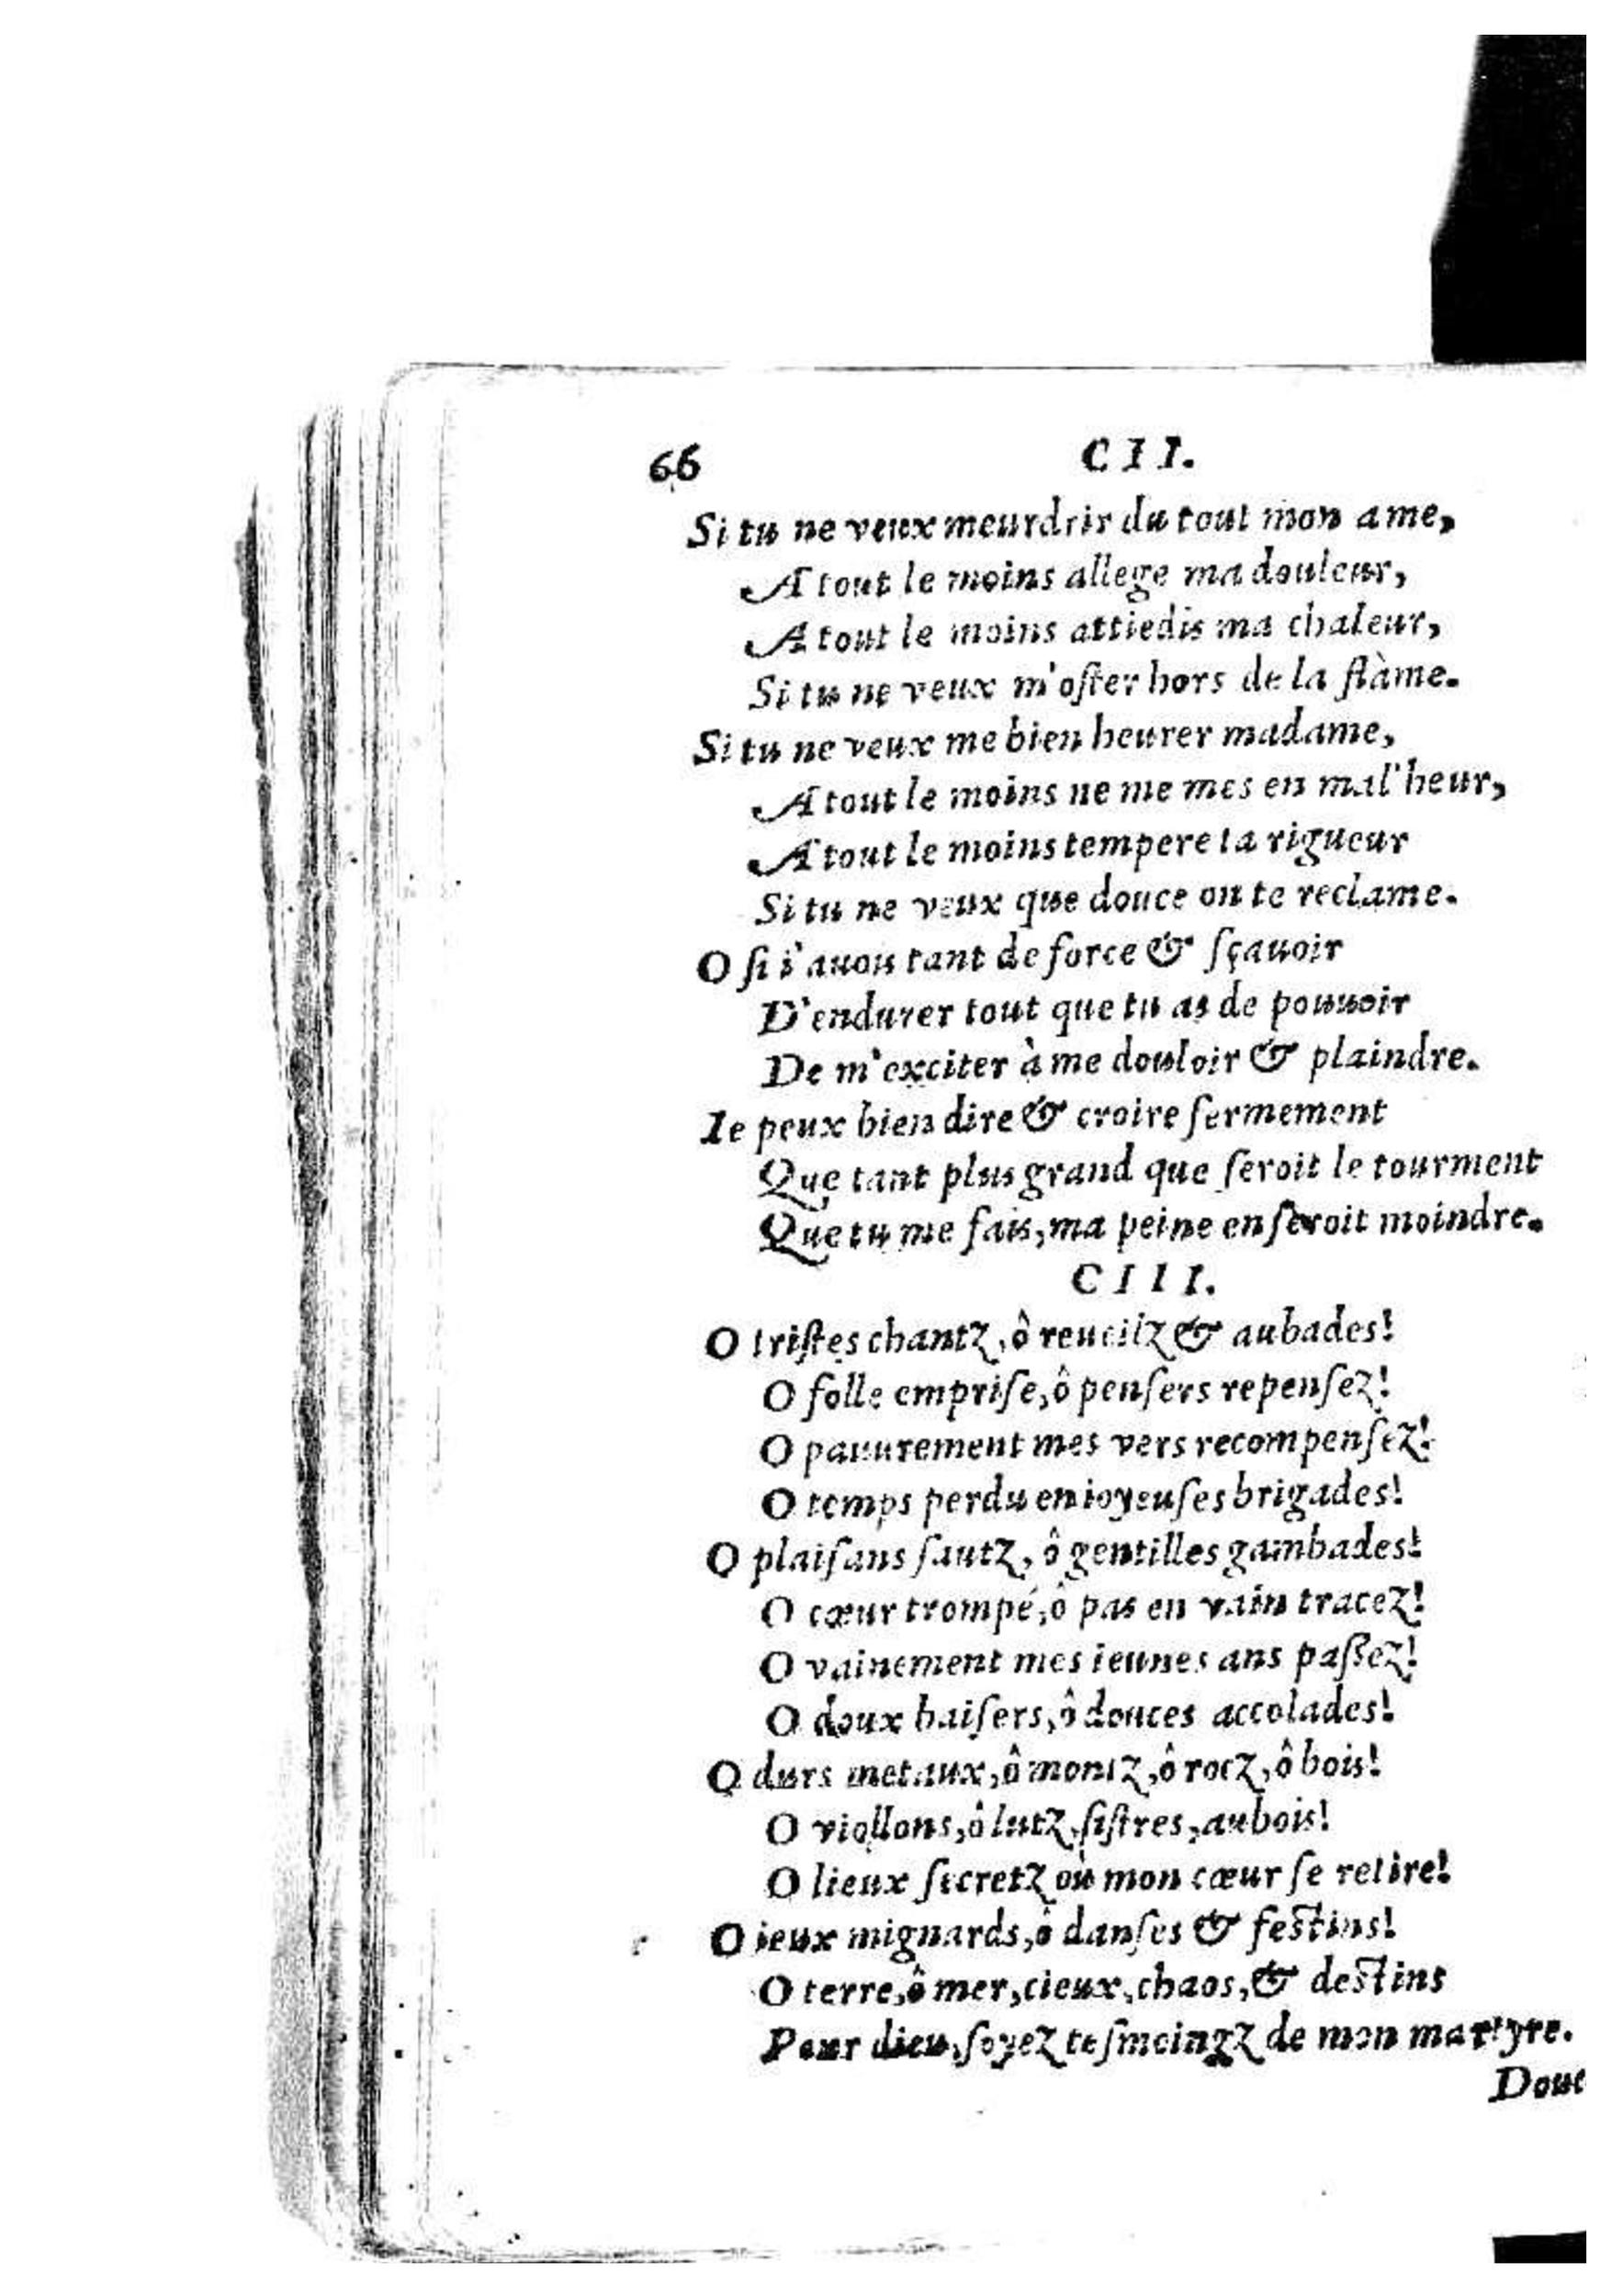 66 CII.
Si tu ne veux meurdrir du tout mon ame,
A tout le moins allege ma douleur,
A tout le moins attiedis ma chaleur,
Si tu ne veux m'oſter hors de la flàme.
Si tu ne veux me bien heurer madame,
A tout le moins ne me mes en mal'heur,
A tout le moins tempere ta rigueur
Si tu ne veux que douce on te reclame.
O ſi i'auois tant de force & ſçauoir
D'endurer tout que tu as de pouuoir
De m'exciter à me douloir & plaindre.
Ie peux bien dire & croire fermement
Que tant plus grand que ſeroit le tourment
Que tu me fais, ma peine en ſeroit moindre.
CIII.
O triſtes chantz, ô reueilz & aubades!
O folle empriſe, ô penſers repenſez!
O pauurement mes vers recompenſez!
O temps perdu en ioyeuſes brigades!
O plaiſans ſautz, ô gentilles gambades!
O cœur trompé, ô pas en vain tracez!
O vainement mes ieunes ans paſſez!
O doux baiſers, ô douces accolades!
O durs metaux, ô montz, ô rocz, ô bois!
O viollons, ô lutz, ſiſtres, aubois!
O lieux ſecretz où mon cœur ſe retire!
O ieux mignards, ô danſes & feſtins!
O terre, ô mer, cieux, chaos, & deſtins
Pour dieu, ſoyez teſmoingz de mon martyre.
Douc